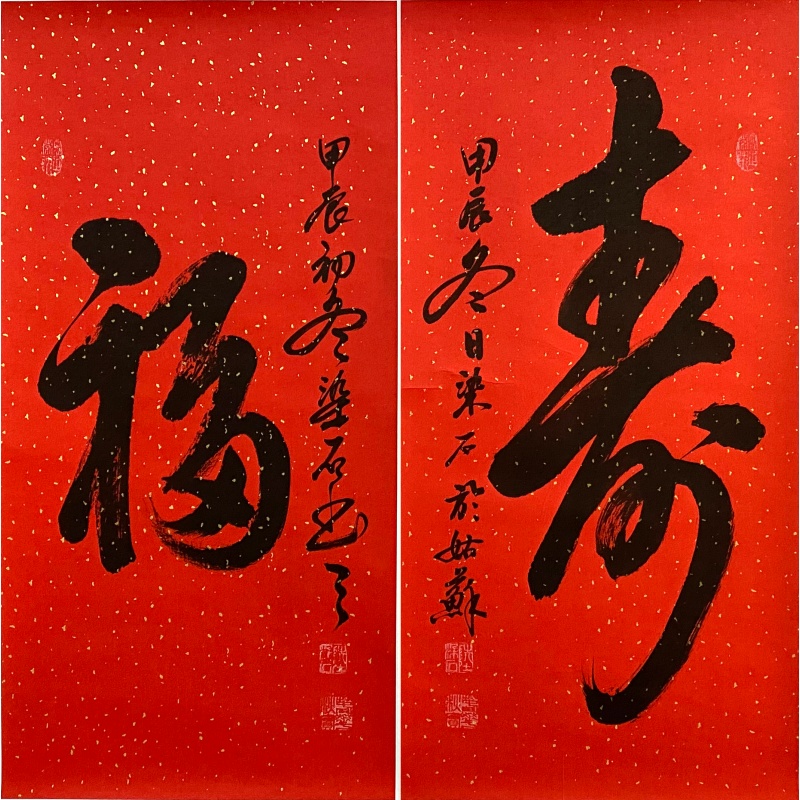 福
甲辰初冬染石书之
寿
甲辰冬日染石於姑蘇